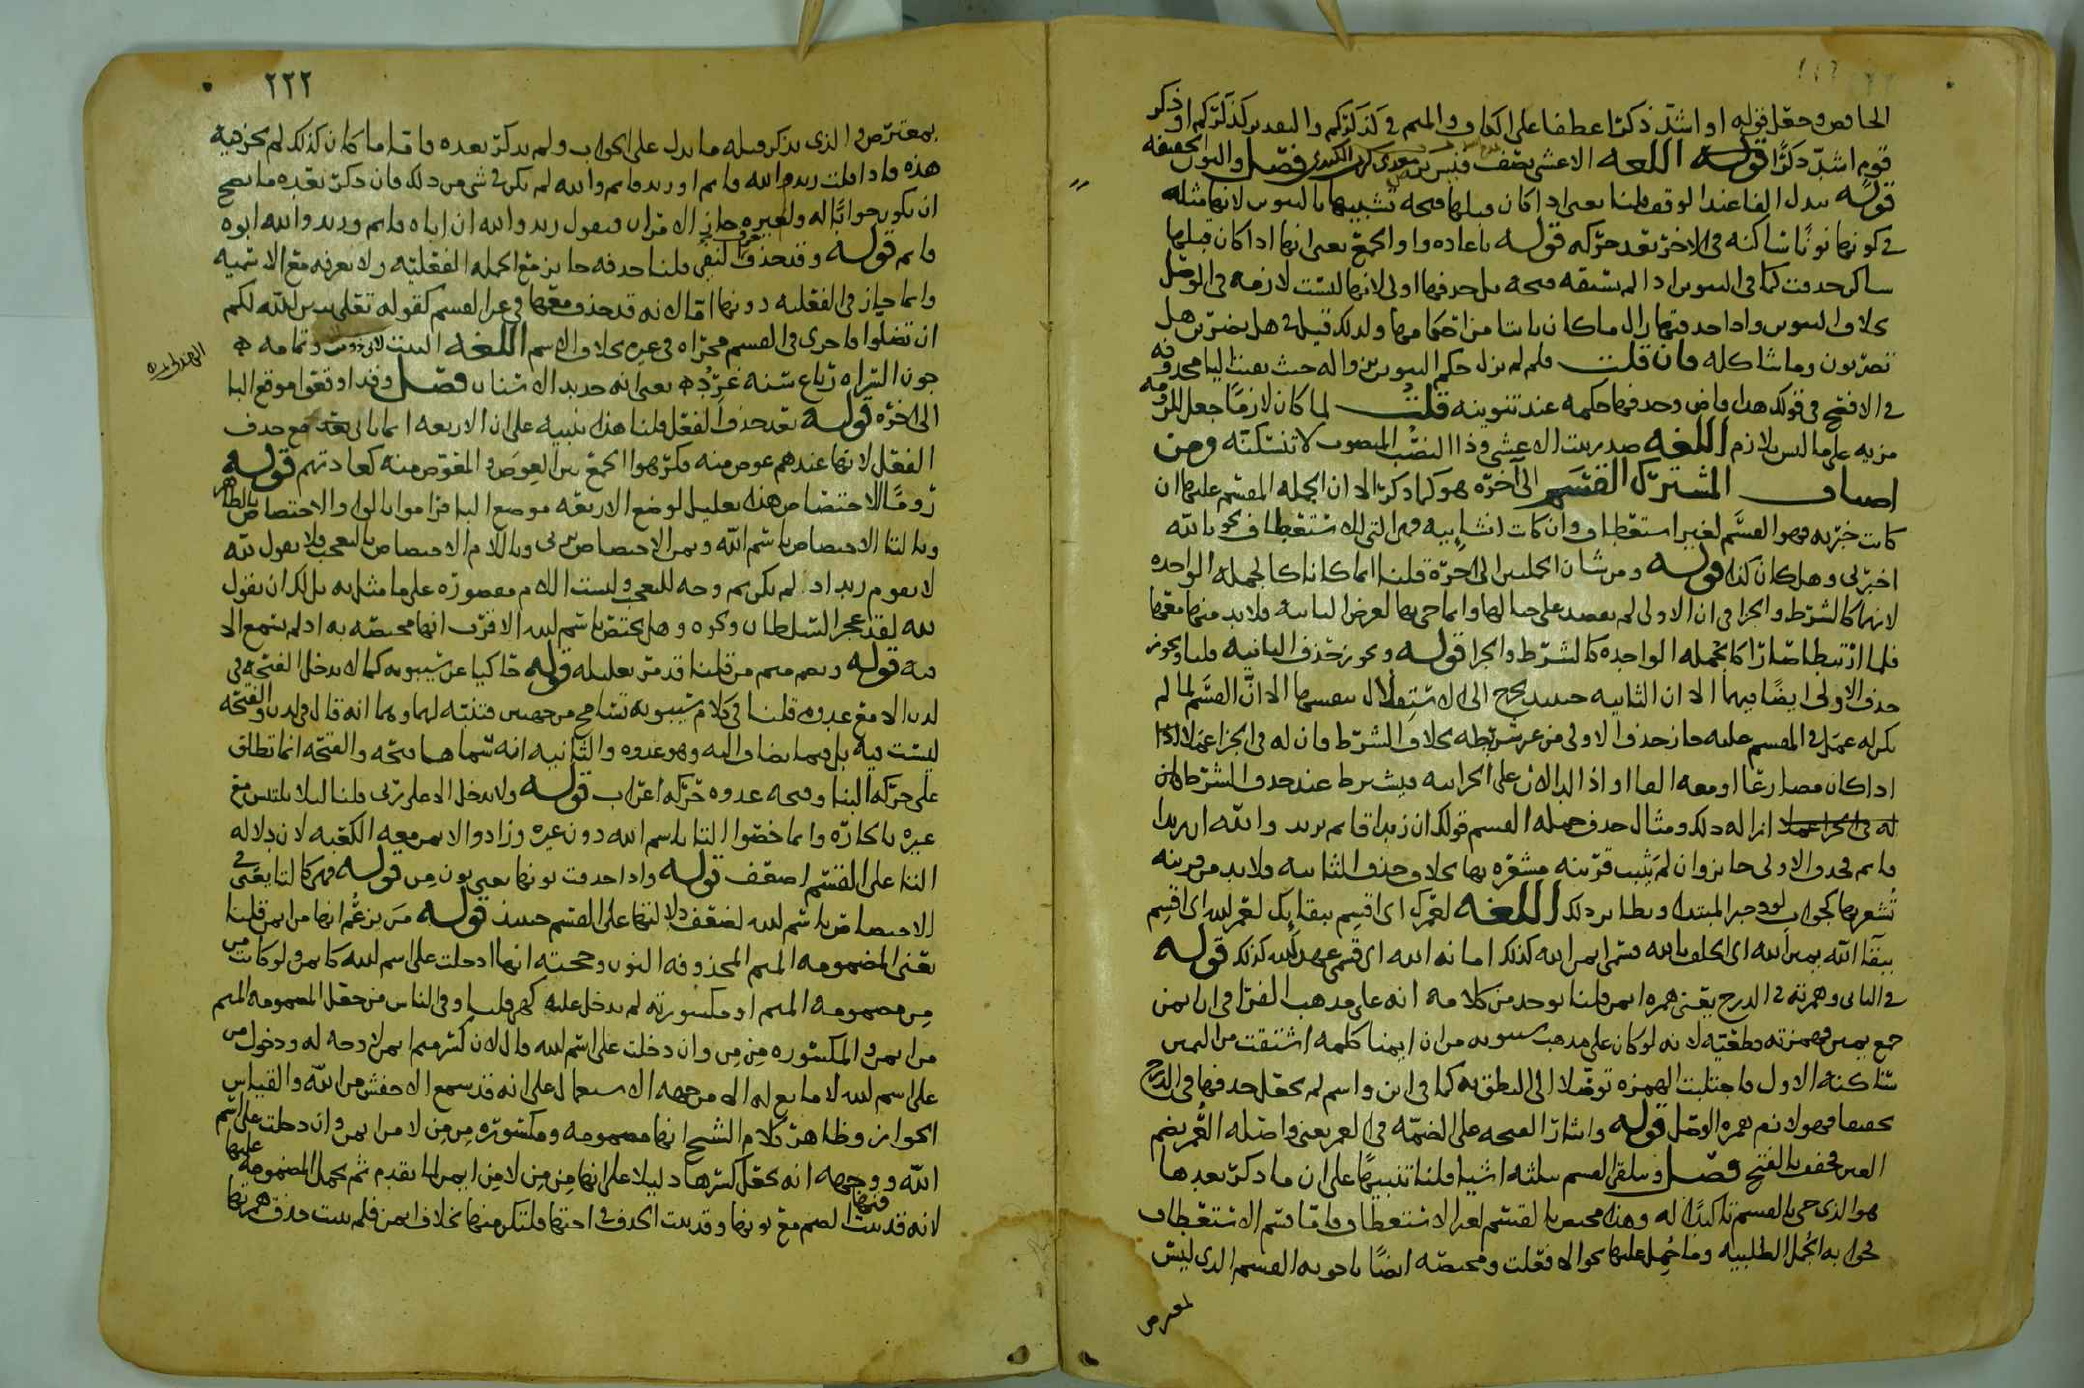 قوله او اشد ذكرا عطفا على الكاف والميم في كذكركم والتقدير كذكركم او ذكر
قوم اشد ذكرا قوله اللغة الاعشى يصف قيس بن معدي كرب الكندي فصل والنون الخفيفة
قوله تبدل الفا عند الوقف قلنا يعني اذا كان قبلها فتحة تشبيها بالتنوين لانها مثله
في كونها نونا ساكنة في الاخر بعد حركة قوله باعادة واو الجمع يعني انها اذا كان قبلها
ساكن حذفت كما في التنوين اذا لم تسبقه فتحة بل حذفها اولى لانها ليست لازمة في الوصل
بخلاف التنوين واذا حذفتها زال ما كان ثابتا من احكامها ولذلك قيل في هل تضربن هل
تضربون وما شاكله فان قلت فلم لم يزل حكم التنوين بزواله حيث بقيت اليا محذوفة
في الافصح في قولك هذا قاض وحذفها حكمه عند تنوينه قلت لما كان لازما جعل للزومه
مزية على ما ليس بلازم اللغة صدر بيت الاعشى وذا النصب المنصوب لا تنسكنه ومن
اصناف المشترك القسم الى آخره هو كما ذكر الا ان الجملة المقسم عليها ان
كانت خبرية فهو القسم لغير استعطاف وان كانت انشائية فهي التي للاستعطاف نحو بالله
اخبرني وهل كان كذا قوله ومن شان الجملتين الى اخره قلنا انما كانا كالجملة الواحدة
لانهما كالشرط والجزا في ان الاولى لم تقصد على حيالها وانما جي بها لغرض الثانية فلا بد منها معها
فلما ارتبطا صارا كالجملة الواحدة كالشرط والجزا قوله ويجوز حذف الثانية قلنا ويجوز
حذف الاولى ايضا فيهما الا ان الثانية حينئذ تخرج الى الاستقلال بنفسها الا ان القسم لما لم
يكن له عمل في المقسم عليه جاز حذف الاولى من غير شريطة بخلاف الشرط فان له في الجزا عملا
اذا كان مضارعا او معه الفا او اذا الدالان على الجزائية فيشترط عند حذف الشرط
ذلك ومثال حذف جملة القسم قولك ان زيدا قائم تريد والله ان زيدا
قائم فحذف الاولى جائز وان لم يثبت قرينة مشعرة بها بخلاف حذف الثانية فلا بد من قرينة
تشعر بها كجواب لو وخبر المبتدا ونظائر ذلك اللغة لعمرك اي اقسم ببقايك لعمر الله اي اقسم
ببقا الله يمين الله اي احلف بالله قسمي ايمن الله كذلك امانة الله اي قسمي عهد الله كذلك قوله
في الثاني وهمزته في الدرج يعني همزة ايمن قلنا يوخذ من كلامه انه على مذهب الفرا في ان ايمن
جمع يمين فهمزته قطعية لانه لو كان على مذهب سيبويه من ان ايمنا كلمة اشتقت من اليمن
ساكنة الاول فاجتلبت الهمزة توصلا الى النطق به كما في ابن واسم لم يجعل حذفها في الدرج
تخفيفا فهو لازم همزة الوصل قوله واشار الفتحة على الضمة في العمر يعني واصله العمر بضم
العين فخفف بالفتح فصل ويتلقى القسم بثلثة اشيا قلنا تنبيها على ان ما ذكر بعدها
هو الذي جي بالقسم تاكيدا له وهذا مختص بالقسم لغير الاستعطاف فاما قسم الاستعطاف
فجوابه الجمل الطلبية وما حمل عليها نحو الا فعلت ومختصة ايضا باجوبة القسم الذي ليس
بمعترض
٢٢٢
بمعترض والذي يذكر قبله ما يدل على الجواب ولم يذكر بعده فاما ما كان كذلك لم يجز فيه
هذه فاذا قلت زيد والله قائم او زيد قائم والله لم يكن في شي من ذلك فان ذكر بعده ما يصح
ان يكون جوابا له ولغيره جاز الامران فتقول زيد والله ان اباه قائم وزيد والله ابوه
قائم قوله وقد حذف حرف النفي قلنا حذفه جايز مع الجملة الفعلية ولا يعرفه مع الاسمية
وانما جاز في الفعلية دونها اما لانه قد حذف معها في غير القسم كقوله تعالى يبين الله لكم
ان تضلوا فاجري في القسم مجراه في غيره بخلاف الاسم اللغة البيت لابي ذويب وتمامه
الهذلي
جون السراة رباع سنه غرد يعني انه حديد الاسنان فصل وقد اوقعوا موقع البا
الى اخره قوله بعد حذف الفعل قلنا هذا تنبيه على ان الاربعة انما تاتي مع حذف
الفعل لانها عندهم عوض منه فكرهوا الجمع بين العوض والمعوض منه كعادتهم قوله
روما للاختصاص هذه تعليل لوضع الاربعة موضع البا فراموا بالواو الاختصاص بالظاهر
وبالتا الاختصاص باسم الله وبمن الاختصاص بربي وباللام الاختصاص بالتعجب فلا يقول لله
لا يقوم زيد اذا لم يكن ثم وجه للتعجب وليست اللام مقصورة على ما مثل به بل لك ان تقول
لله لقد عجز السلطان ونحوه وهل يختص باسم الله الاقرب انها مختصة به اذ لم يسمع الا
فيه قوله وبضم ميم من قلنا قد مر تعليله قوله حاكيا عن سيبويه كما لا تدخل الفتحة في
لدن الا مع غدوة قلنا في كلام سيبويه تسامح من جهتين فتنبه لهما وهما انه قال في لدن والفتحة
ليست فيه بل فيما يضاف اليه وهو غدوة والثانية انه سماها فتحة والفتحة انما تطلق
على حركة البنا وفتحة غدوة حركة اعراب قوله ولا تدخل الا على ربي قلنا ليلا يلتبس مع
غيره بالجارة وانما خصوا التا باسم الله دون غيره وزادوا الايمن معه الكعبة لان دلالة
التا على القسم اضعف قوله واذا حذفت نونها يعني نون من قوله فهي كالتا يعني في
الاختصاص باسم الله لضعف دلالتها على القسم حينئذ قوله من يزعم انها من ايمن قلنا
يعني المضمومة الميم المحذوفة النون وحجته انها ادخلت على اسم الله كايمن ولو كانت من
من مضمومة الميم او مكسورته لم تدخل عليه كهي قلنا وفي الناس من جعل المضمومة الميم
من ايمن والمكسورة من من وان دخلت على اسم الله قال لان كسر ميم ايمن لا وجه له ودخول من
على اسم الله لا مانع له الا من جهة الاستعمال على انه قد سمع الاخفش من الله والقياس
الجواز وظاهر كلام الشيخ انها مضمومة ومكسورة من من لا من ايمن وان دخلت على اسم
الله ووجهه انه يجعل كسرها دليلا على انها من من لا من ايمن لما تقدم ثم يحمل المضمومة عليها
لانه قد ثبت فيها الضم مع نونها وقد ثبت الحذف في اختها فلتكن منها بخلاف ايمن فلم يثبت حذف همزتها